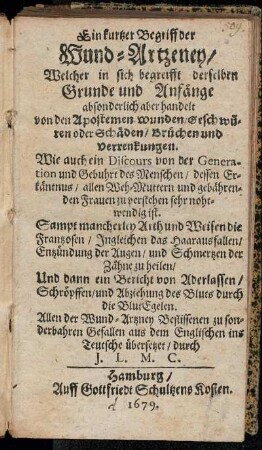 Ein kurtzer Begriff der
Wund-Artzeney/
Welcher in sich begreifft derselben
Grunde und Anfänge
absonderlich aber handelt
von den Apostemen wunden/Geschwü-
ren oder Schäden/Brüchen und
verrenkungen.
Wie auch ein Discours von der Genera-
tion und Gebuhrt des Menschen/dessen Er-
käntnus/allen Weh-Muttern und gebähren-
den Frauen zu verstehen sehr noht-
wendig ist.
Sampt mancherley Arth und Weisen die
Frantzosen/Ingleichen das Haarausfallen/
Entzündung der Augen/und Schmertzen der
Zähne zu heilen/
Und dann ein Bericht von Aderlassen/
Schröpffen/und Abziehung des Bluts durch
die BlutEgelen.
Allen der Wund-Artzney Beflissenen zu son-
derbahren Gefallen aus dem Englischen ins
Teutsche übersetzet/durch
J. L. M. C.
Hamburg/
Auff Gottfriedt Schultzens Kosten.
1679.